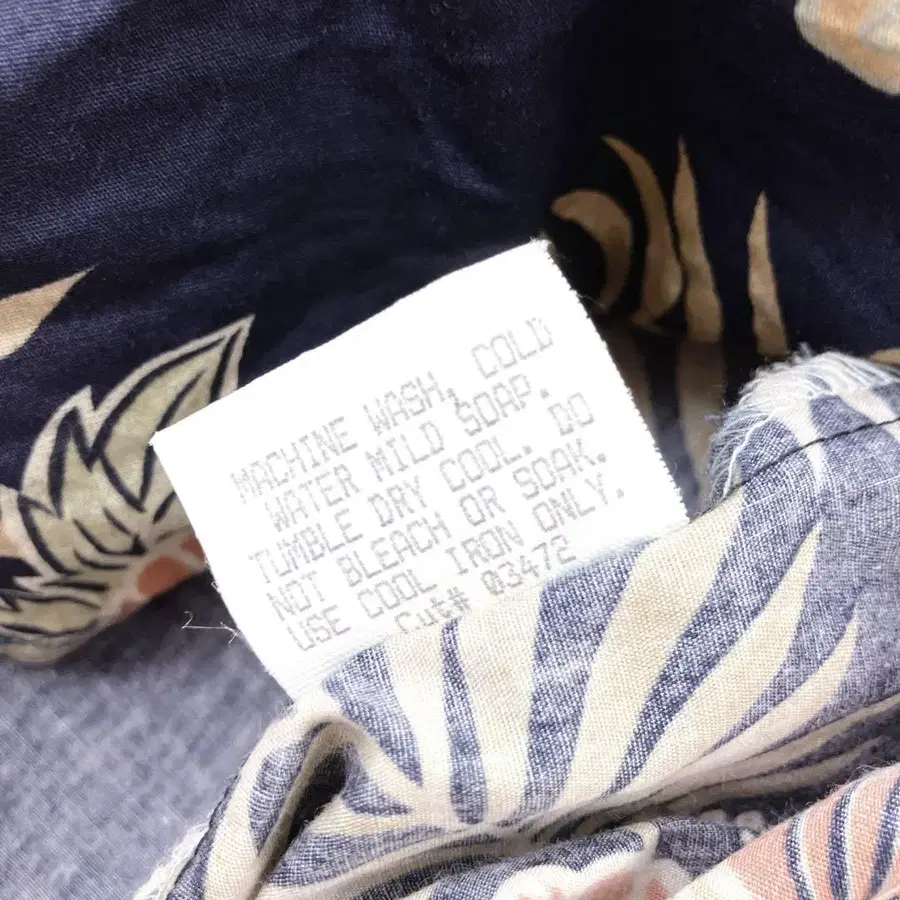 MACHINE WASH, COLD
WATER MILD SOAP.
TUMBLE DRY COOL. DO
NOT BLEACH OR SOAK.
USE COOL IRON ONLY.
Cut# 03472